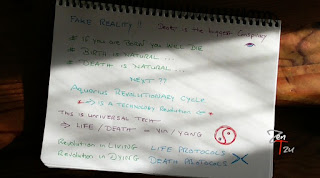 FAKE REALITY !! Death is the biggest conspiracy
* IF YOU ARE BORN YOU WILL DIE
* BIRTH IS NATURAL ...
* DEATH IS NATURAL ...
NEXT ??
AQUARIUS REVOLUTIONARY CYCLE
IS A TECHNOLOGY REVOLUTION OF
THIS IS UNIVERSAL TECH
=> LIFE / DEATH = YIN / YANG
REVOLUTION IN LIVING LIFE PROTOCOLS
REVOLUTION IN DYING DEATH PROTOCOLS
Zen